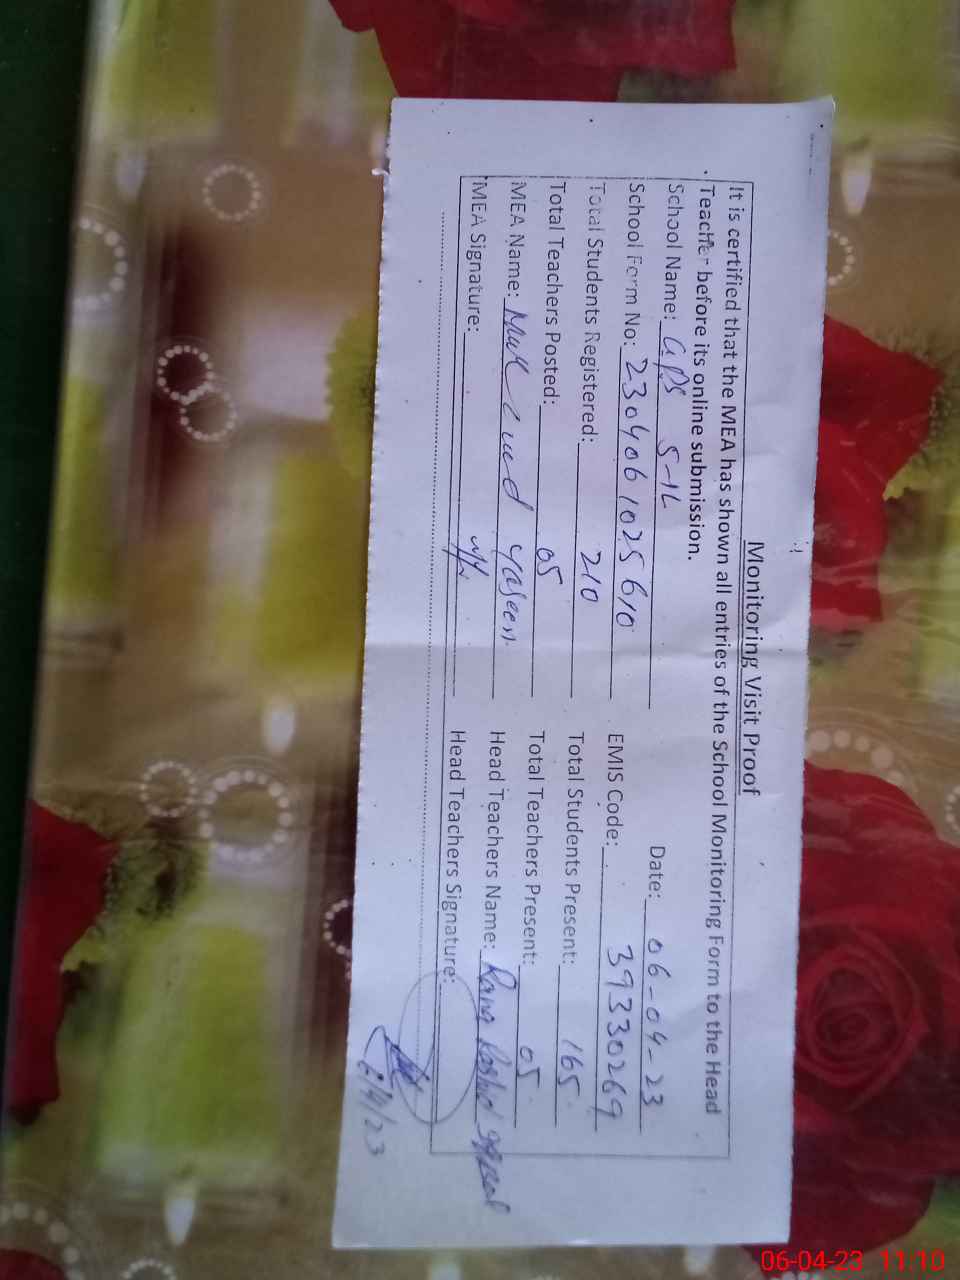 Monitoring Visit Proof
It is certified that the MEA has shown all entries of the School Monitoring Form to the Head
Teacher before its online submission.
School Name: GPS 5-1L Date: 06-04-23
School Form No: 2304061025610 EMIS Code: 39330269
Total Students Registered: 210 Total Students Present: 165
Total Teachers Posted: 05 Total Teachers Present: 05
MEA Name: Yaseen Head Teachers Name: Rana Rashid
MEA Signature: Head Teachers Signature:
6/4/23
06-04-23 11:10